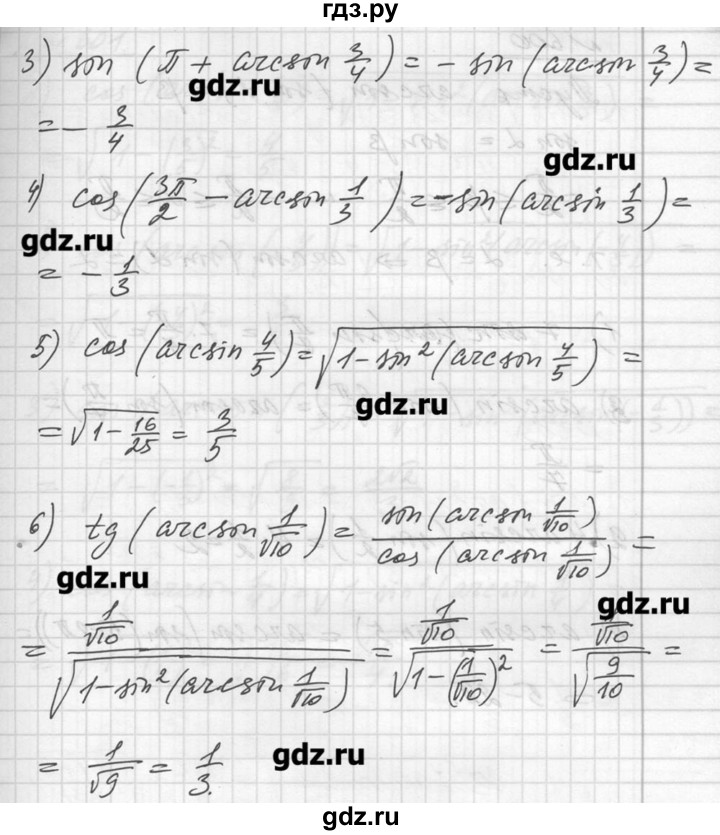 гдз.ру
3) sin (π + arcsin 3/4) = - sin (arcsin 3/4) =
gdz.ru
= - 3/4
gdz.ru
4) cos(3π/2 - arcsin 1/3) = - sin(arcsin 1/3) =
gdz.ru
= - 1/3
5) cos (arcsin 4/5) = √(1 - sin²(arcsin 4/5)) =
gdz.ru
= √(1 - 16/25) = 3/5
6) tg (arcsin 1/√10) = sin(arcsin 1/√10) / cos(arcsin 1/√10) =
gdz.ru
gdz.ru
= (1/√10) / √(1 - sin²(arcsin 1/√10)) = (1/√10) / √(1 - (1/√10)²) = (1/√10) / √(9/10) =
= 1/√9 = 1/3.
gdz.ru
gdz.ru